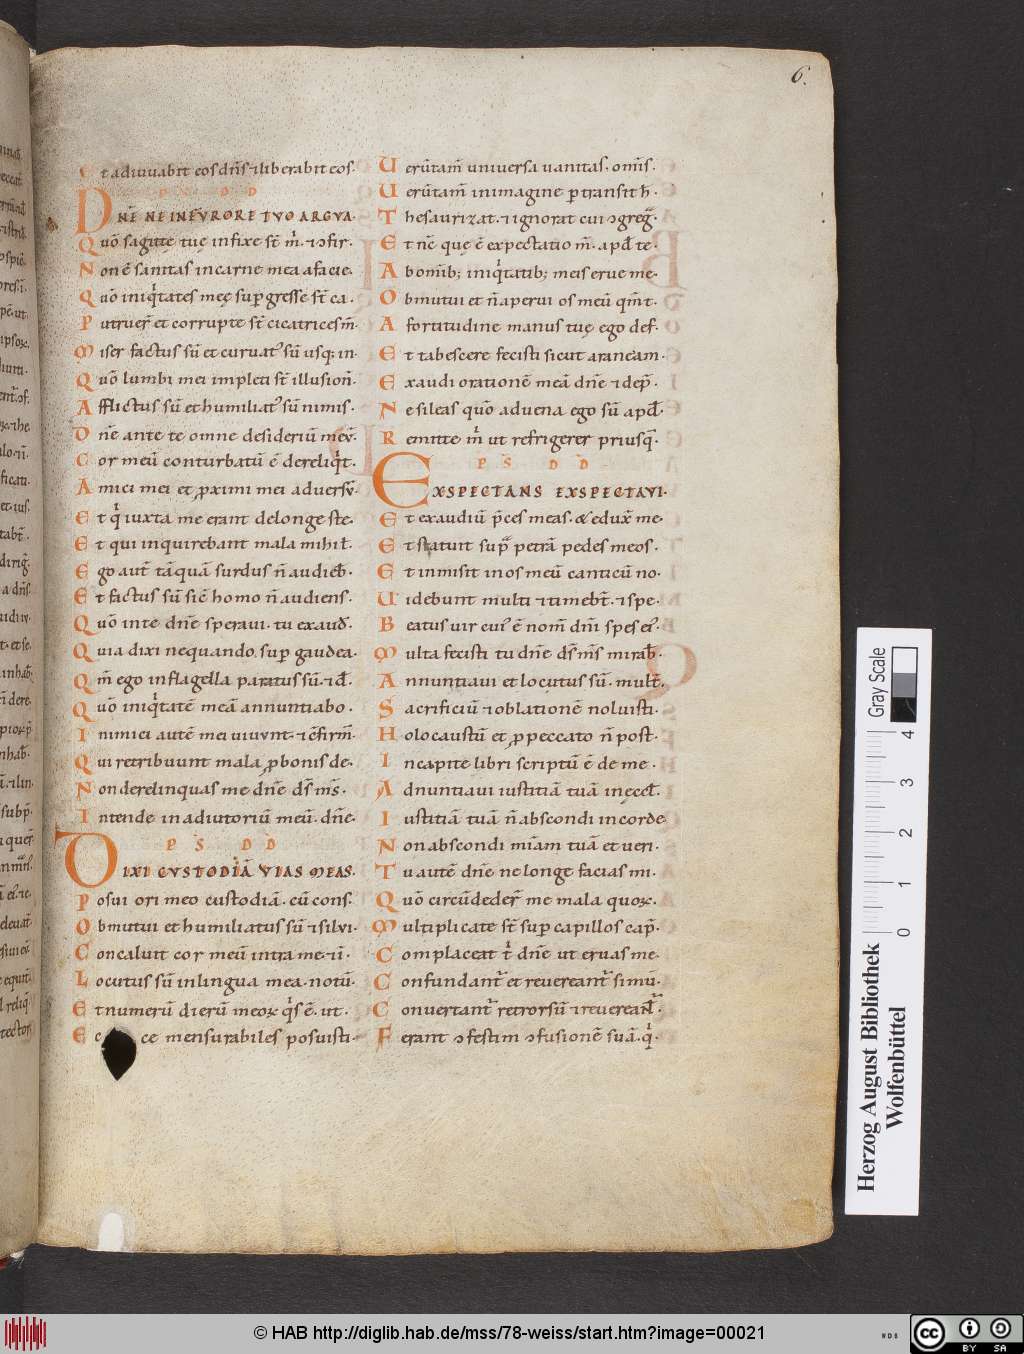 6.
Et adiuuabit eos dn̄s ⁊ liberabit eos·
PS DD
DNĒ NE IN FVRORE TVO ARGVA·
Quō sagitte tuę infixe st̄ m̍· ⁊ ↄfir·
Non ē sanitas in carne mea afacie·
Quō iniq̍tates meę sup̲gresse st̄ ca·
Putruer̄ et corrupte st̄ cicatrices m̄·
Miser factus sū et curuat᾽ sū usq; in·
Quō lumbi mei impleti st̄ illusion̄·
Afflictus sū et humiliat᾽ sū nimis·
Dn̄e ante te omne desideriū meū·
Cor meū conturbatū ē dereliq̍t·
Amici mei et ꝓximi mei aduersū·
Et q̍ iuxta me erant delonge ste·
Et qui inquirebant mala mihi ł·
Ego aut̄ tāquā surdus n̄ audieb̄·
Et factus sū sic̄ homo n̄ audiens·
Quō inte dn̄e speraui· tu exaud̄·
Quia dixi nequando sup̲ gaudea·
Qm̄ ego inflagella paratus sū· ⁊ d̄·
Quō iniq̍tatē meā annuntiabo·
Inimici autē mei uiuunt· ⁊ ↄfirm̄·
Qui retribuunt mala ꝓbonis de·
Non derelinquas me dn̄e ds̄ ms̄·
Intende in adiutoriū meū· dn̄e·
PS DD
DIXI CVSTODIĀ VIAS MEAS·
Posui ori meo custodiā· cū cons·
Obmutui et humiliatus sū ⁊ silui·
Concaluit cor meū intra me· ⁊ ī·
Locutus sū inlingua mea· notū·
Et numerū dierū meoꝝ q̍s ē· ut·
Ecce mensurabiles posuisti·
Uerūtam̄ uniuersa uanitas· omīs·
Uerūtam̄ inimagine p̲transit h·
Thesaurizat· ⁊ ignorat cui ↄgreg̃·
Et nc̄ quę ē expectatio m̄· apd̄ te·
Abomīb; iniq̍tatib; meis erue me·
Obmutui et n̄ aperui os meū qm̄ t·
Afortitudine manus tuę ego def·
Et tabescere fecisti sicut araneam·
Exaudi orationē meā dn̄e ⁊ dep̄·
Ne sileas quō aduena ego sū apd̄·
Remitte m̍ ut refrigerer priusq̄·
PS DD
EXSPECTANS EXSPECTAVI·
Et exaudiū p̄ces meas· & edux̄ me·
Et statuit sup̄ petrā pedes meos·
Et inmisit inos meū canticū no·
Uidebunt multi ⁊ timebt̄· ⁊ spe·
Beatus uir cui᾽ ē nom̄ dn̄i spes ei᾽·
Multa fecisti tu dn̄e ds̄ ms̄ mirab̄·
Annuntiaui et locutus sū· mult̄·
Sacrificiū ⁊ oblationē noluisti·
Holocaustū et ꝓpeccato n̄ post·
Incapite libri scriptū ē de me·
Adnuntiaui iustitiā tuā inęccl̄·
Iustitiā tuā n̄ abscondi incorde
Non abscondi mīam tuā et ueri·
Tu autē dn̄e ne longe facias mi·
Quō circūdeder̄ me mala quoꝝ·
Multiplicate st̄ sup̲ capillos cap̄·
Complaceat t̍ dn̄e ut eruas me·
Confundant̄ et reuereant̄ simū·
Conuertant̄ retrorsū ⁊ reuereant̄·
Ferant ↄfestim ↄfusionē suā· q̍·
Gray Scale
0 1 2 3 4
Herzog August Bibliothek
Wolfenbüttel
© HAB http://diglib.hab.de/mss/78-weiss/start.htm?image=00021
cc BY SA